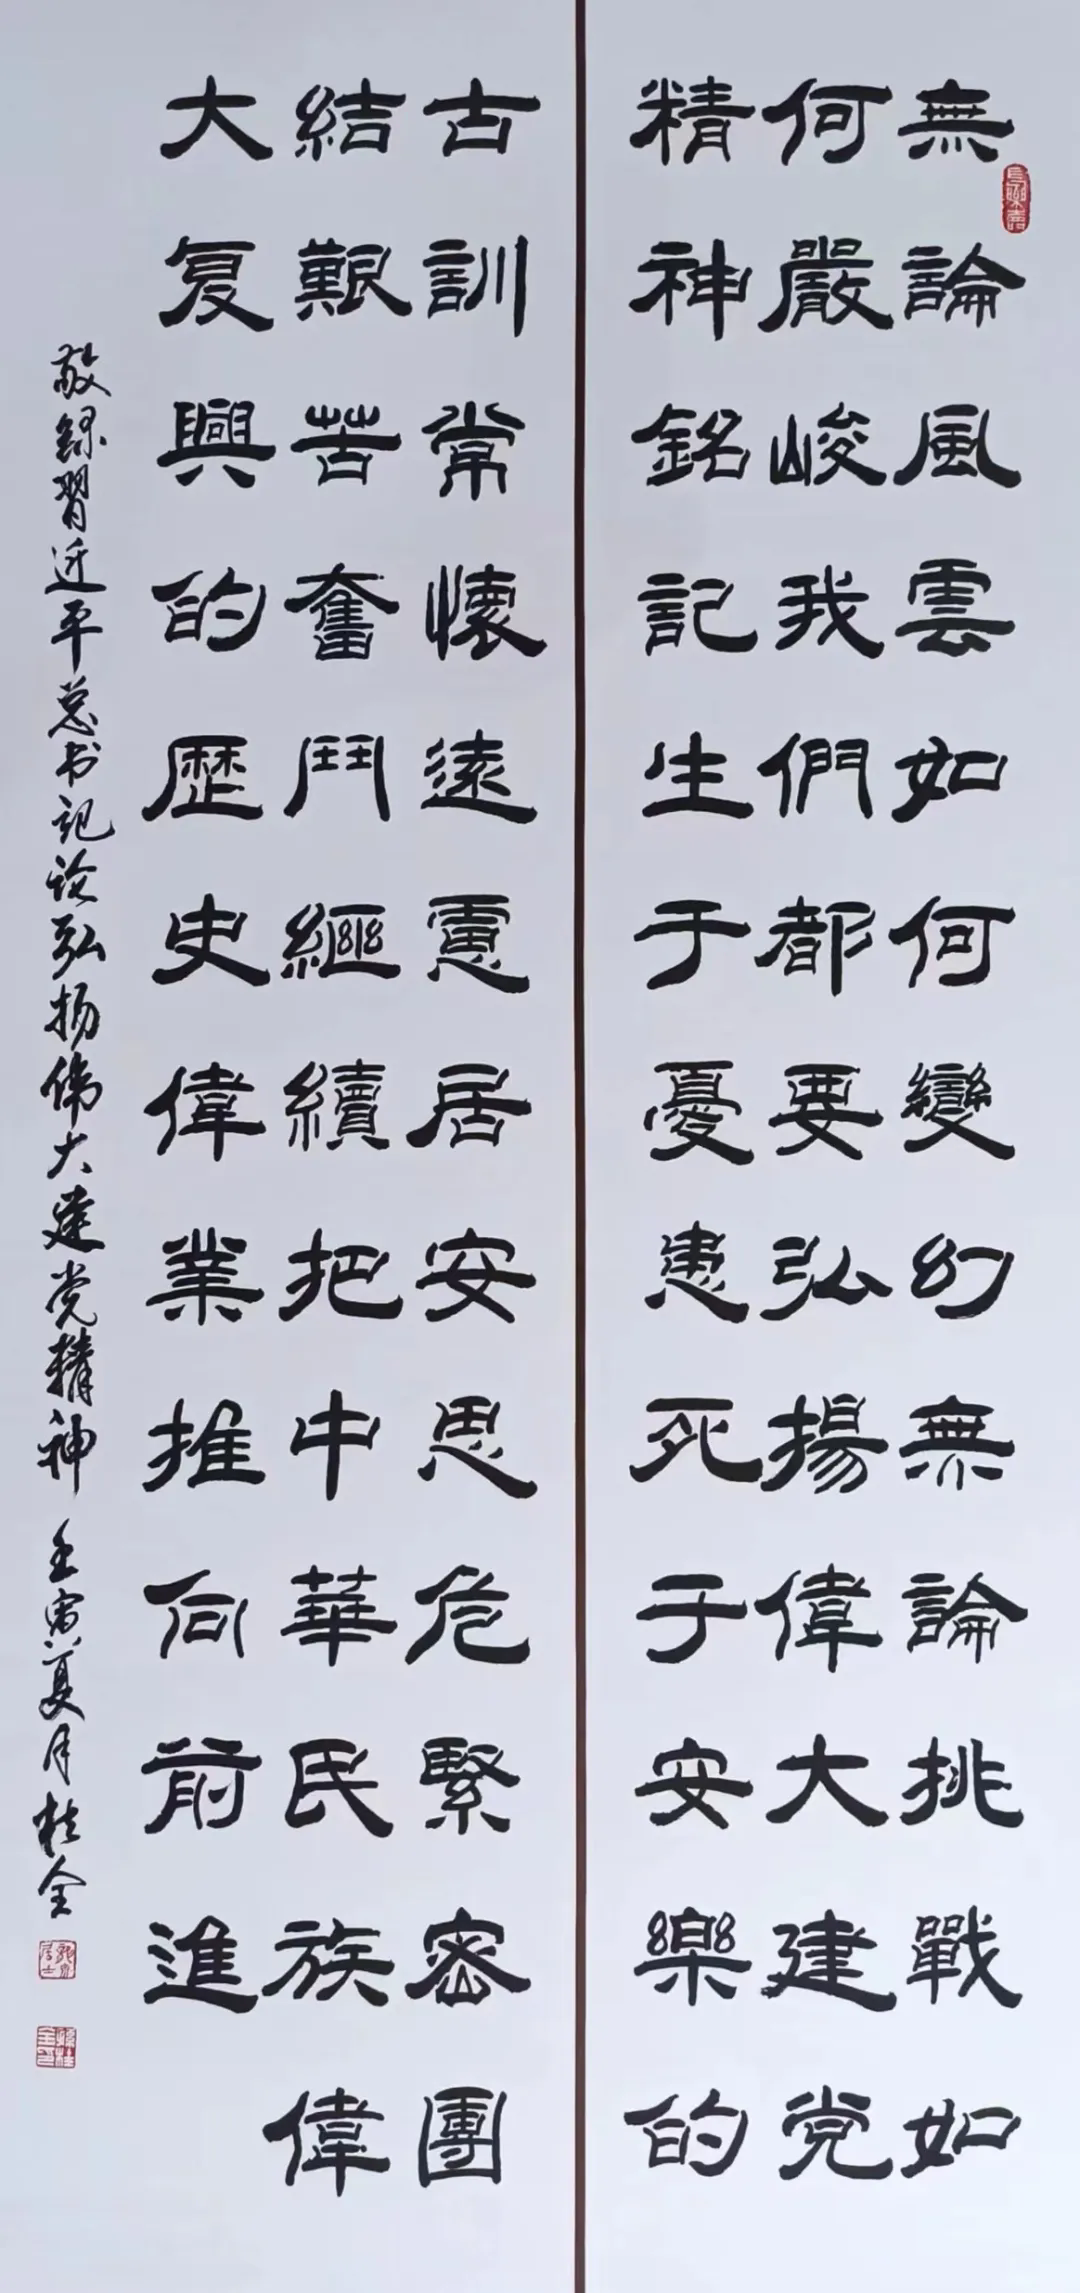 無論風雲如何變幻無論挑戰如
何嚴峻我們都要弘揚偉大建党
精神銘記生于憂患死于安樂的
古訓常懷遠慮居安思危緊密團
結艱苦奮鬥繼續把中華民族偉
大复興的歷史偉業推向前進
敬録習近平总书记论弘扬偉大建党精神 壬寅夏月 桂全